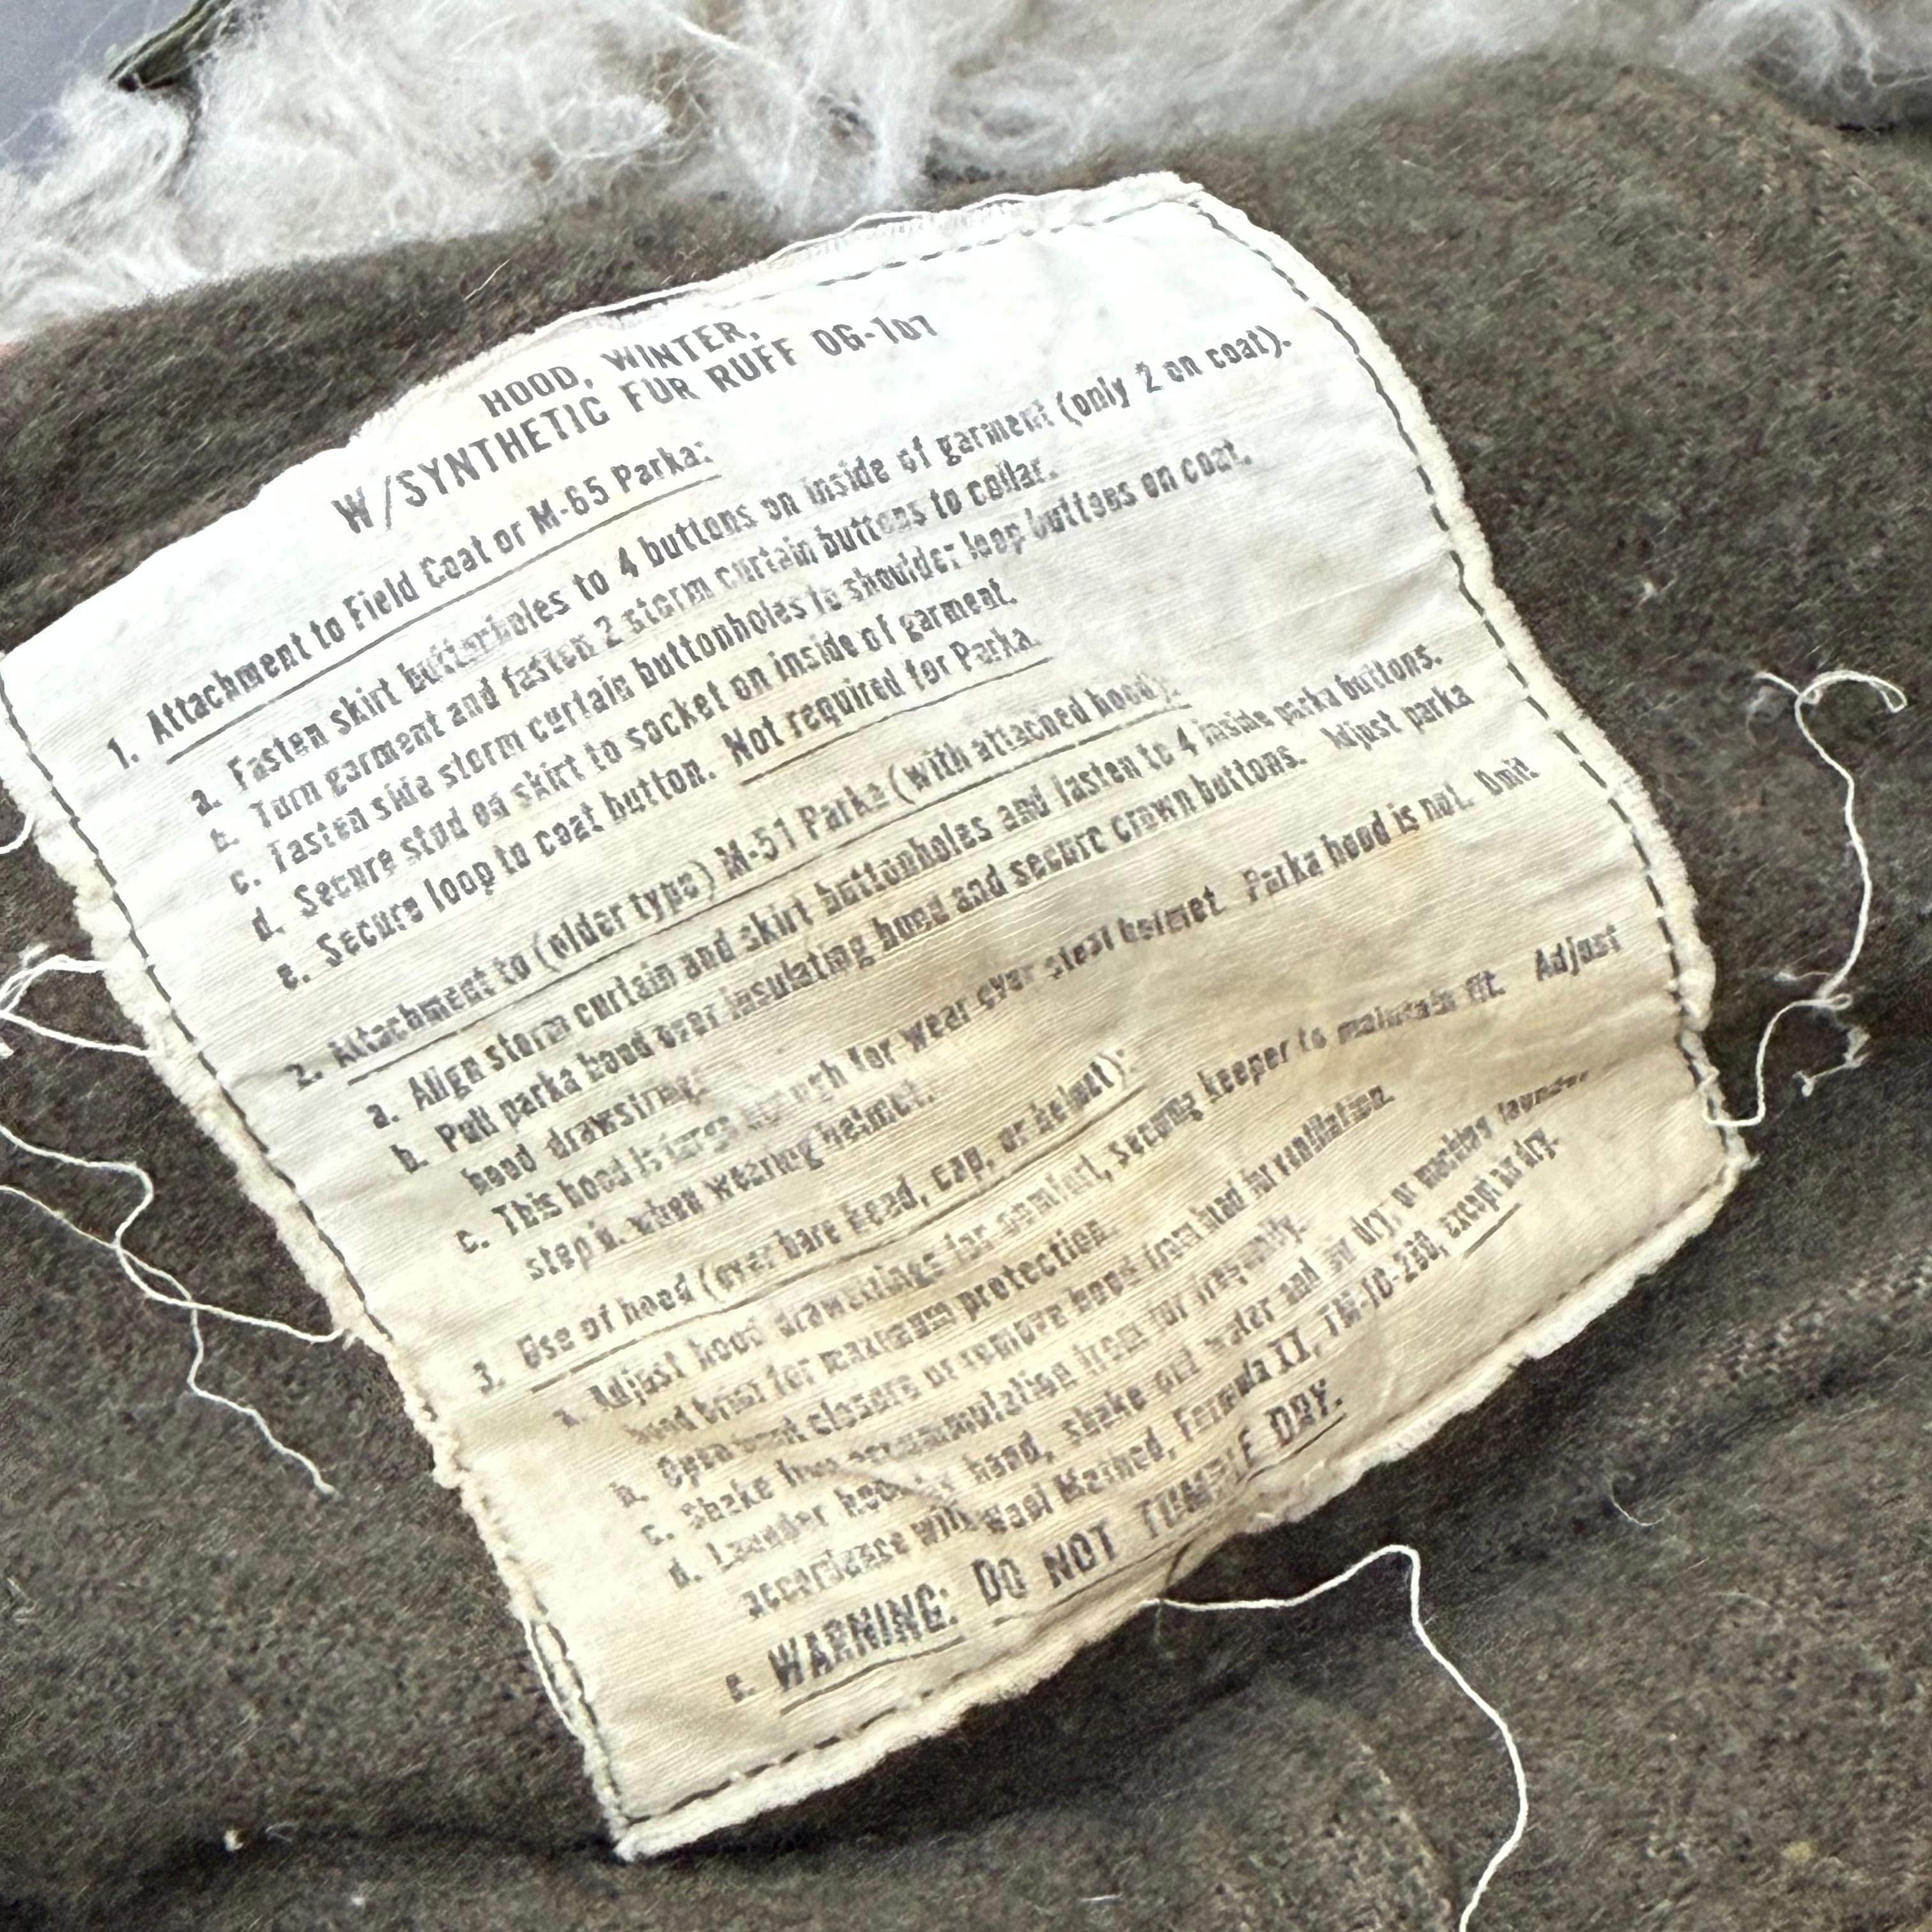 HOOD, WINTER,
W/SYNTHETIC FUR RUFF OG-107
1. Attachment to Field Coat or M-65 Parka:
a. Fasten skirt buttonholes to 4 buttons on inside of garment (only 2 on coat).
b. Turn garment and fasten 2 storm curtain buttons to collar.
c. Fasten side storm curtain buttonholes to shoulder loop buttons on coat.
d. Secure stud on skirt to socket on inside of garment.
e. Secure loop to coat button. Not required for Parka.
2. Attachment to (older type) M-51 Parka (with attached hood):
a. Align storm curtain and skirt buttonholes and fasten to 4 inside parka buttons.
b. Pull parka hood over insulating hood and secure crown buttons. Adjust parka
hood drawstrings
c. This hood is large enough for wear over steel helmet Parka hood is not. Omit
step b. when wearing helmet.
3. Use of hood (over bare head, cap, or helmet):
a. Adjust hood drawstrings for comfort, securing keeper to maintain fit. Adjust
hood brim for maximum protection.
b. Open hood closure or remove hood from head for ventilation.
c. Shake frost accumulation from fur frequently.
d. Launder hood by hand, shake out water and air dry, or machine launder
accordance with Wool Method, Formula II, TM-10-280, except air dry.
e. WARNING: DO NOT TUMBLE DRY.